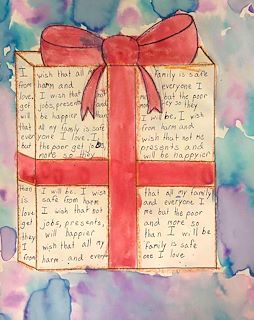 I wish that all my
from harm and
love, I wish that not
get jobs, presents and
will be happier
that all my family is safe
everyone I love I
but the poor get jobs
more so they
family is safe
everyone I
me but the poor
so they
will be, I wish
from harm and
wish that not me
presents and
will be happier
than I will be. I wish
is safe from harm
love I wish that not
get jobs, presents,
they will happier
I wish that all my
from harm and every
that all my family
and everyone I
me but the poor
and more so
than I will be
family is safe
one I love